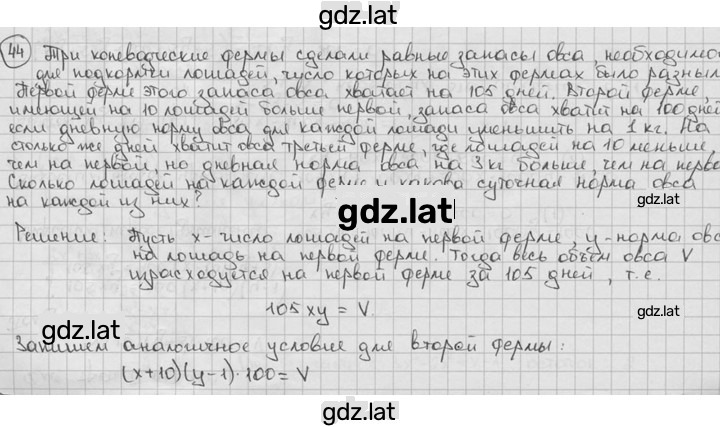 gdz.lat
44 Три коневодческие фермы сделали равные запасы овса, необходимого
для подкормки лошадей, число которых на этих фермах было разным.
Первой ферме этого запаса овса хватает на 105 дней. Второй ферме,
имеющей на 10 лошадей больше первой, запаса овса хватит на 100 дней,
если дневную норму овса для каждой лошади уменьшить на 1 кг. На
столько же дней хватит овса третьей ферме, где лошадей на 10 меньше,
чем на первой, но дневная норма овса на 3 кг больше, чем на перво
Сколько лошадей на каждой ферме и какова суточная норма овса
на каждой из них?
gdz.lat
Решение: Пусть x - число лошадей на первой ферме, y - норма овс
на лошадь на первой ферме. Тогда весь объём овса V
израсходуется на первой ферме за 105 дней, т.е.
105xy = V.
gdz.lat
gdz.lat
Запишем аналогичное условие для второй фермы:
(x+10)(y-1)·100 = V
gdz.lat